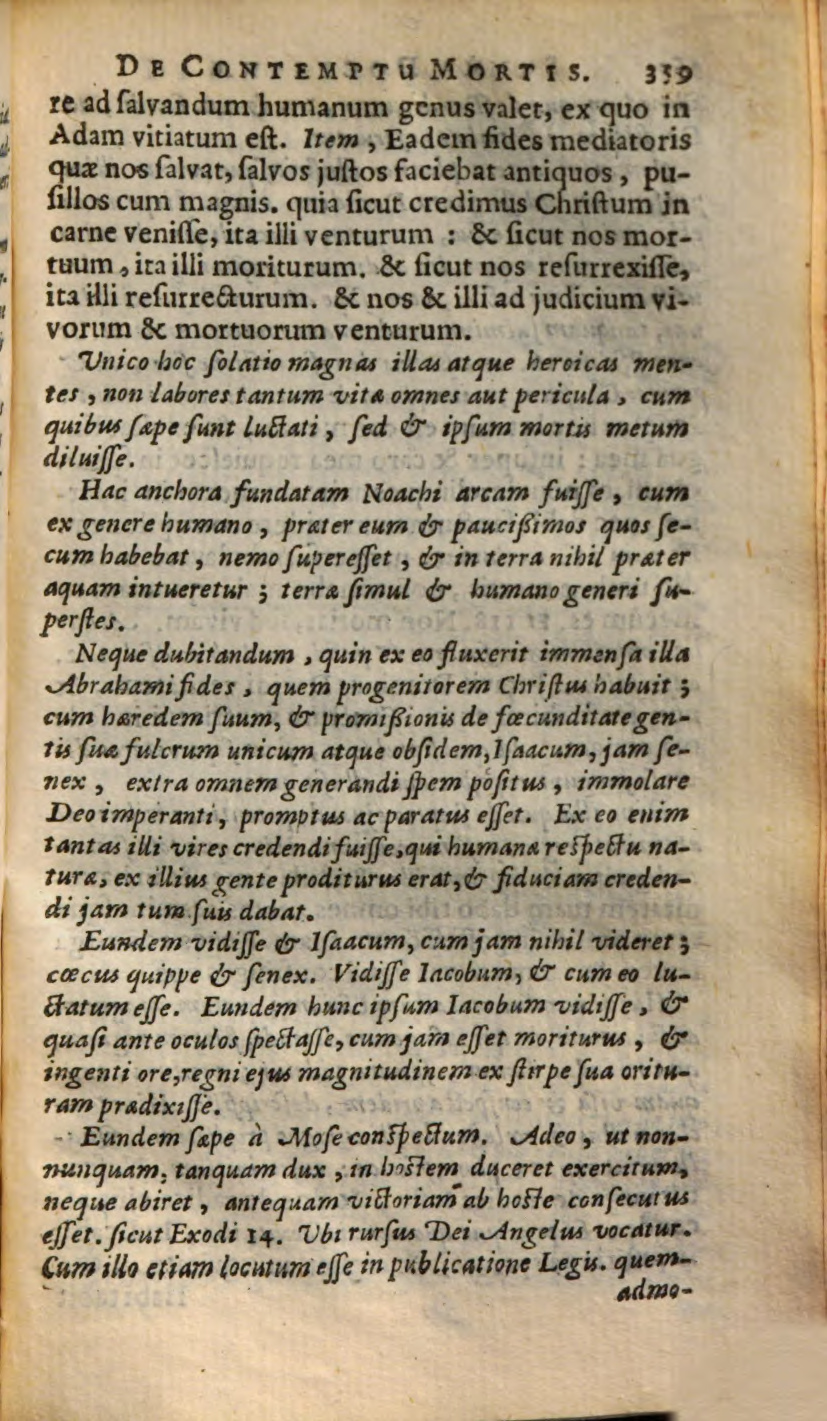 DE CONTEMPTU MORTIS. 359
re ad ſalvandum humanum genus valet, ex quo in
Adam vitiatum eſt. Item, Eadem fides mediatoris
quæ nos ſalvat, ſalvos juſtos faciebat antiquos, pu-
ſillos cum magnis. quia ſicut credimus Chriſtum in
carne veniſſe, ita illi venturum : & ſicut nos mor-
tuum, ita illi moriturum. & ſicut nos reſurrexiſſe,
ita illi reſurrecturum. & nos & illi ad judicium vi-
vorum & mortuorum venturum.
Unico hoc ſolatio magnas illas atque heroicas men-
tes, non labores tantum vitæ omnes aut pericula, cum
quibus ſæpe ſunt luctati, ſed & ipſum mortis metum
diluiſſe.
Hac anchora fundatam Noachi arcam fuiſſe, cum
ex genere humano, præter eum & pauciſſimos quos ſe-
cum habebat, nemo ſupereſſet, & in terra nihil præter
aquam intueretur ; terræ ſimul & humano generi ſu-
perſtes.
Neque dubitandum, quin ex eo fluxerit immenſa illa
Abrahami fides, quem progenitorem Chriſtus habuit ;
cum hæredem ſuum, & promiſſionis de fœcunditate gen-
tis ſuæ fulcrum unicum atque obſidem, Iſaacum, jam ſe-
nex, extra omnem generandi ſpem poſitus, immolare
Deo imperanti, promptus ac paratus eſſet. Ex eo enim
tantas illi vires credendi fuiſſe, qui humanæ reſpectu na-
turæ, ex illius gente proditurus erat, & fiduciam creden-
di jam tum ſuis dabat.
Eundem vidiſſe & Iſaacum, cum jam nihil videret ;
cœcus quippe & ſenex. Vidiſſe Iacobum, & cum eo lu-
ctatum eſſe. Eundem hunc ipſum Iacobum vidiſſe, &
quaſi ante oculos ſpectaſſe, cum jam eſſet moriturus, &
ingenti ore, regni ejus magnitudinem ex ſtirpe ſua oritu-
ram prædixiſſe.
Eundem ſæpe à Moſe conſpectum. Adeo, ut non-
nunquam, tanquam dux, in hoſtem duceret exercitum,
neque abiret, antequam victoriam ab hoſte conſecutus
eſſet. ſicut Exodi 14. Ubi rurſus Dei Angelus vocatur.
Cum illo etiam locutum eſſe in publicatione Legis. quem-
admo-